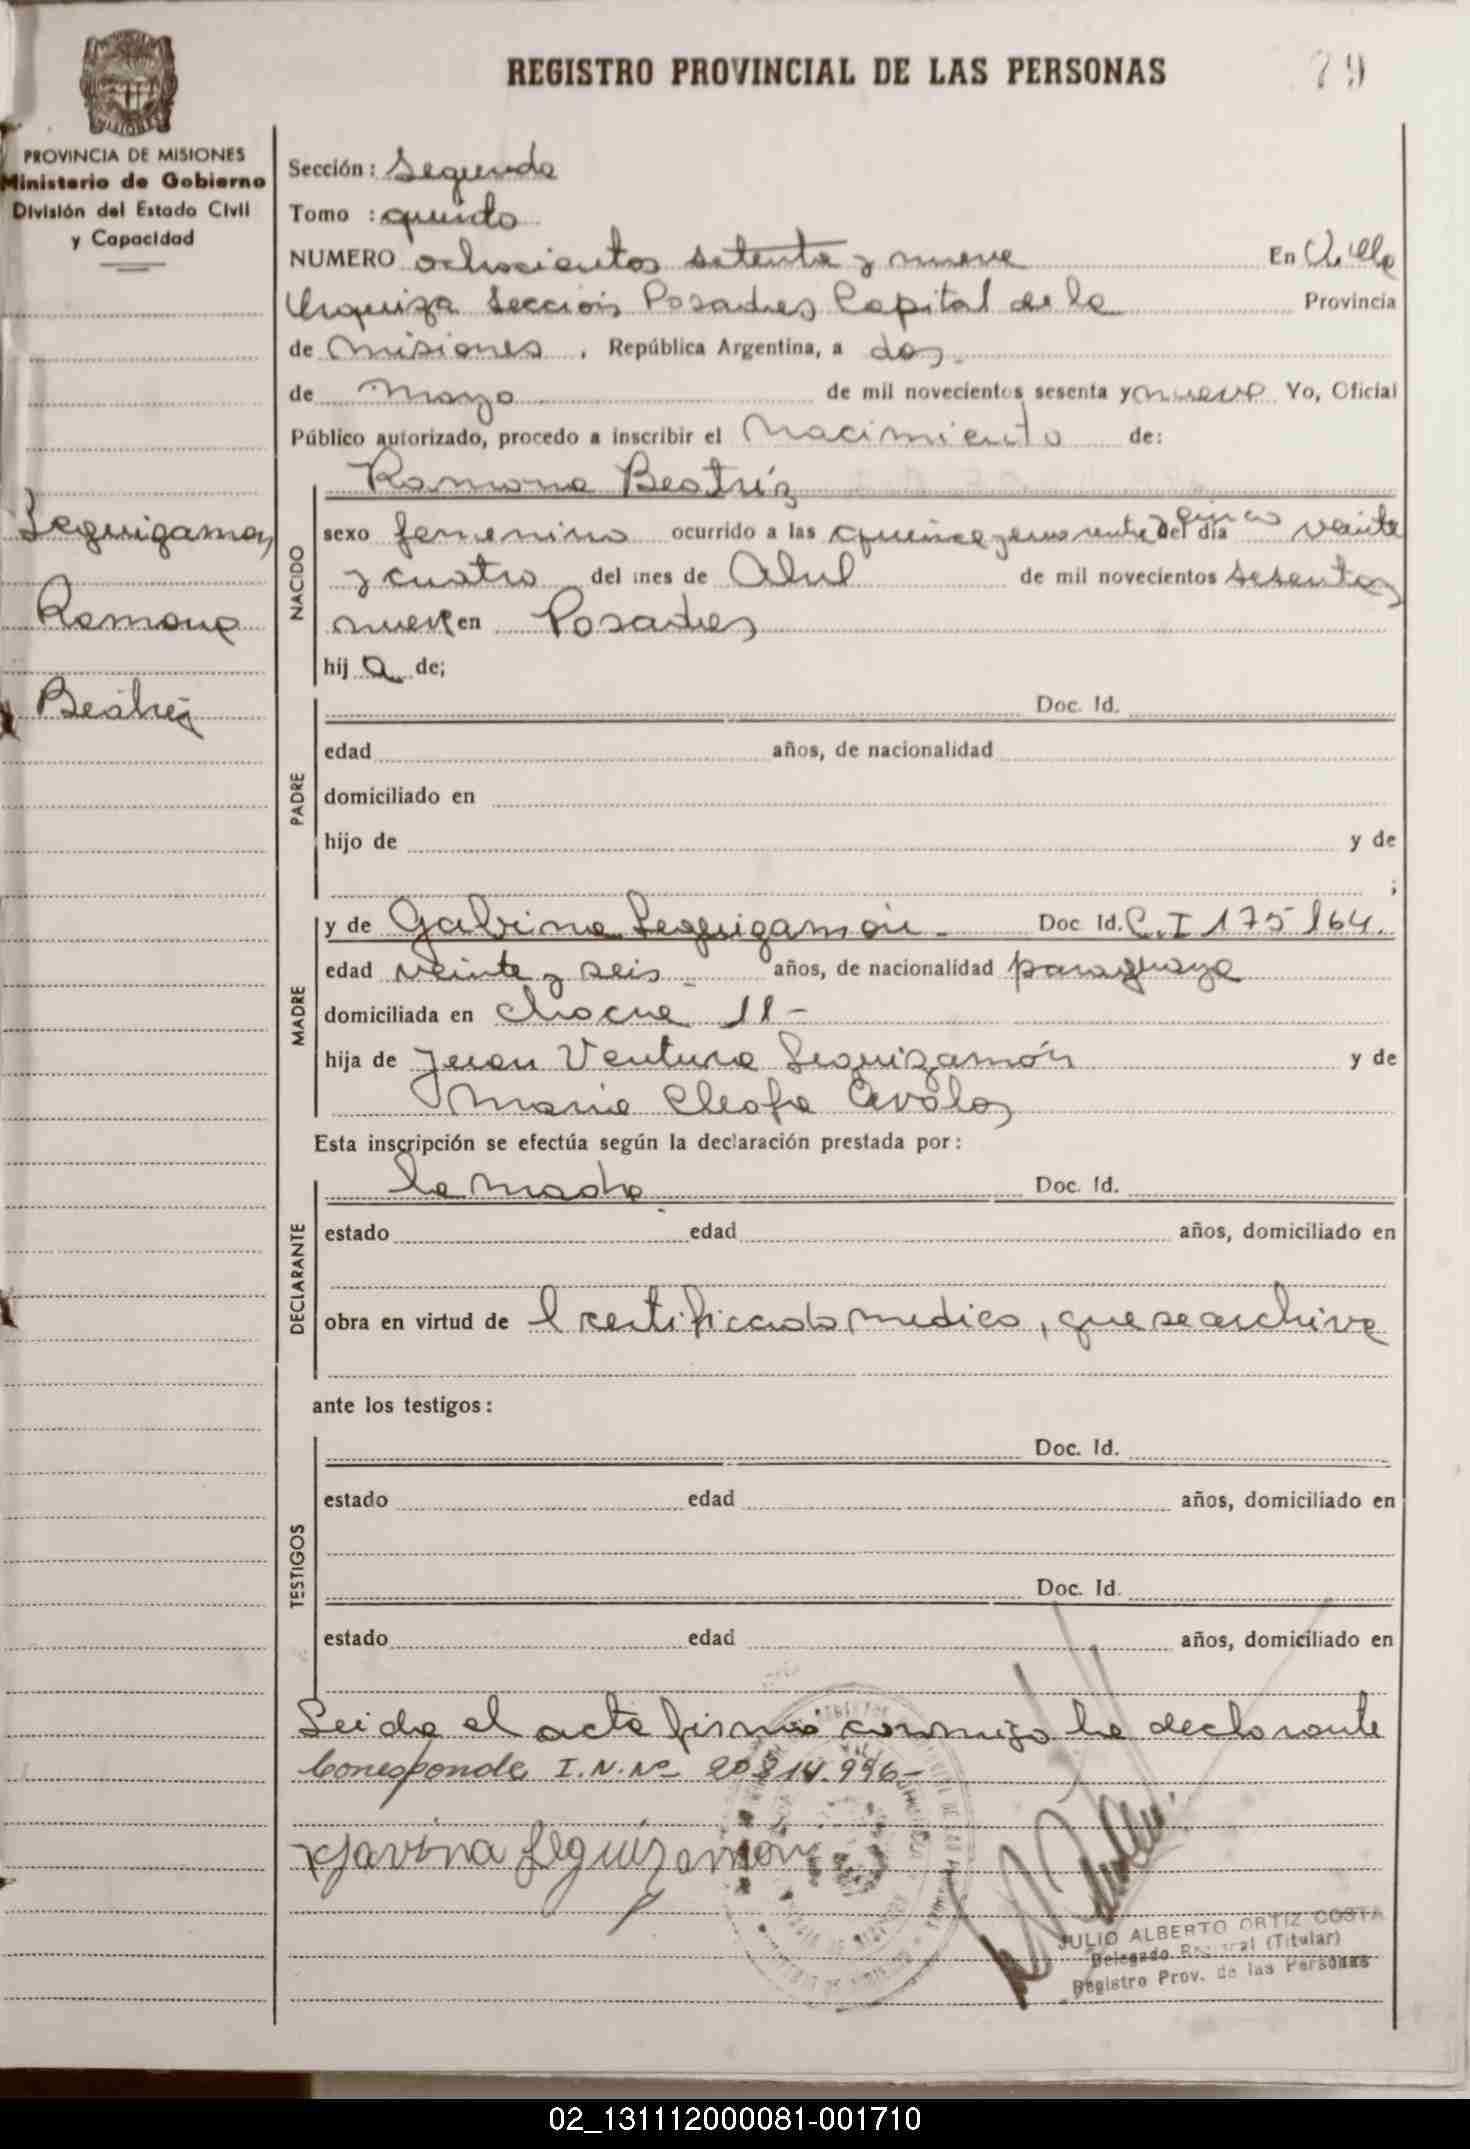 REGISTRO PROVINCIAL DE LAS PERSONAS
79
MISIONES
PROVINCIA DE MISIONES
Ministerio de Gobierno
División del Estado Civil
y Capacidad
Seguizamon
Ramona
Beatriz
Sección: Segunda
Tomo : quinto
NUMERO ochocientos setenta y nueve En Villa
Urquiza Sección Posadas Capital de la Provincia
de Misiones, República Argentina, a dos
de Mayo de mil novecientos sesenta y nueve Yo, Oficial
Público autorizado, procedo a inscribir el Nacimiento de:
NACIDO
Ramona Beatríz
sexo femenino ocurrido a las quince y cincuenta y cinco del día veinte
y cuatro del mes de Abril de mil novecientos sesenta y
nueve en Posadas
hij a de;
PADRE
Doc. Id.
edad años, de nacionalidad
domiciliado en
hijo de y de
;
MADRE
y de Gabina Seguizamón - Doc Id. C.I 175 164.
edad veinte y seis años, de nacionalidad paraguaya
domiciliada en 11 -
hija de Juan Ventura Seguizamón y de
Maria Cleofa Avalos
Esta inscripción se efectúa según la declaración prestada por:
DECLARANTE
la madre Doc. Id.
estado edad años, domiciliado en
obra en virtud de l certificado medico, que se archiva
ante los testigos:
TESTIGOS
Doc. Id.
estado edad años, domiciliado en
Doc. Id.
estado edad años, domiciliado en
Leida el acta firma conmigo la declarante
Corresponde I.N.Nº 20.814.996-
Gavina Seguizamon
JULIO ALBERTO ORTIZ COSTA
Delegado Regional (Titular)
Registro Prov. de las Personas
02_131112000081-001710